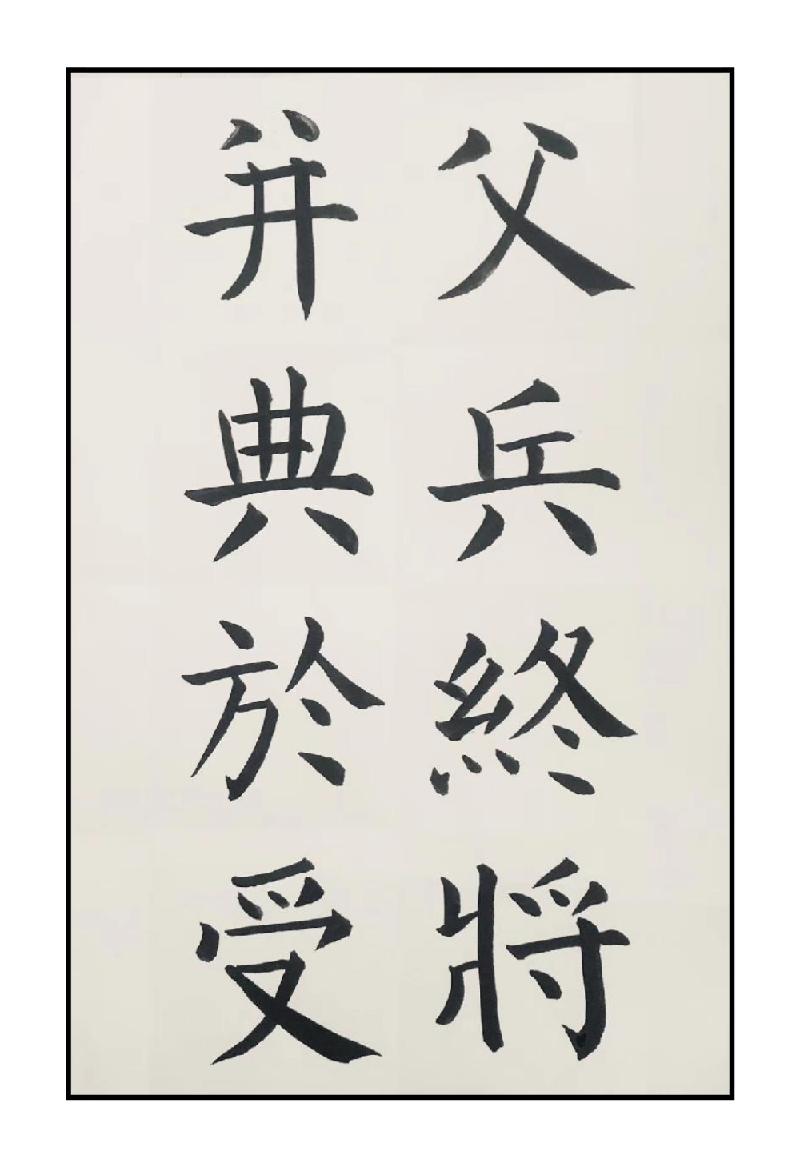 父兵終將
并典於受